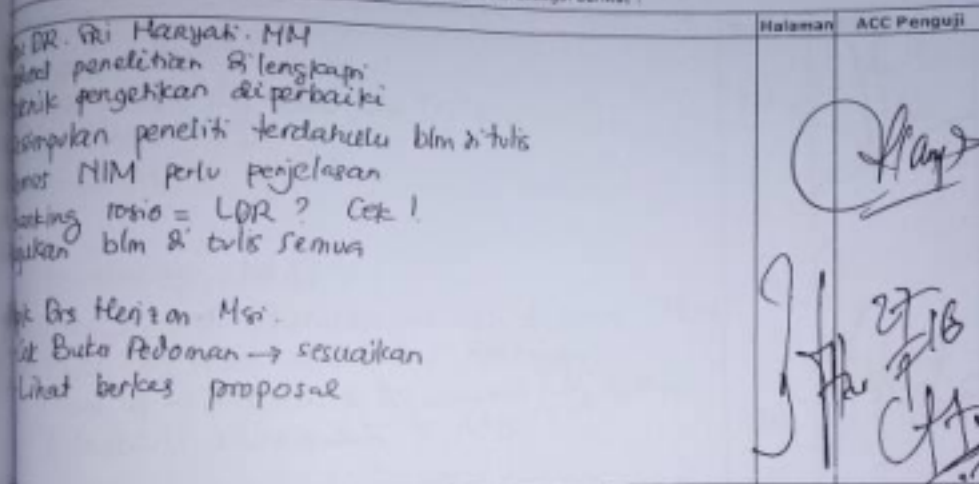 Halaman ACC Penguji
DR. Sri Haryati. MM
penelitian dilengkapi
pengetikan diperbaiki
peneliti terdahulu blm ditulis
NIM perlu penjelasan
rosio = LDR ? Cek !
blm di tulis semua
Drs Herizon Msi.
Buku Pedoman → sesuaikan
Lihat berkas proposal